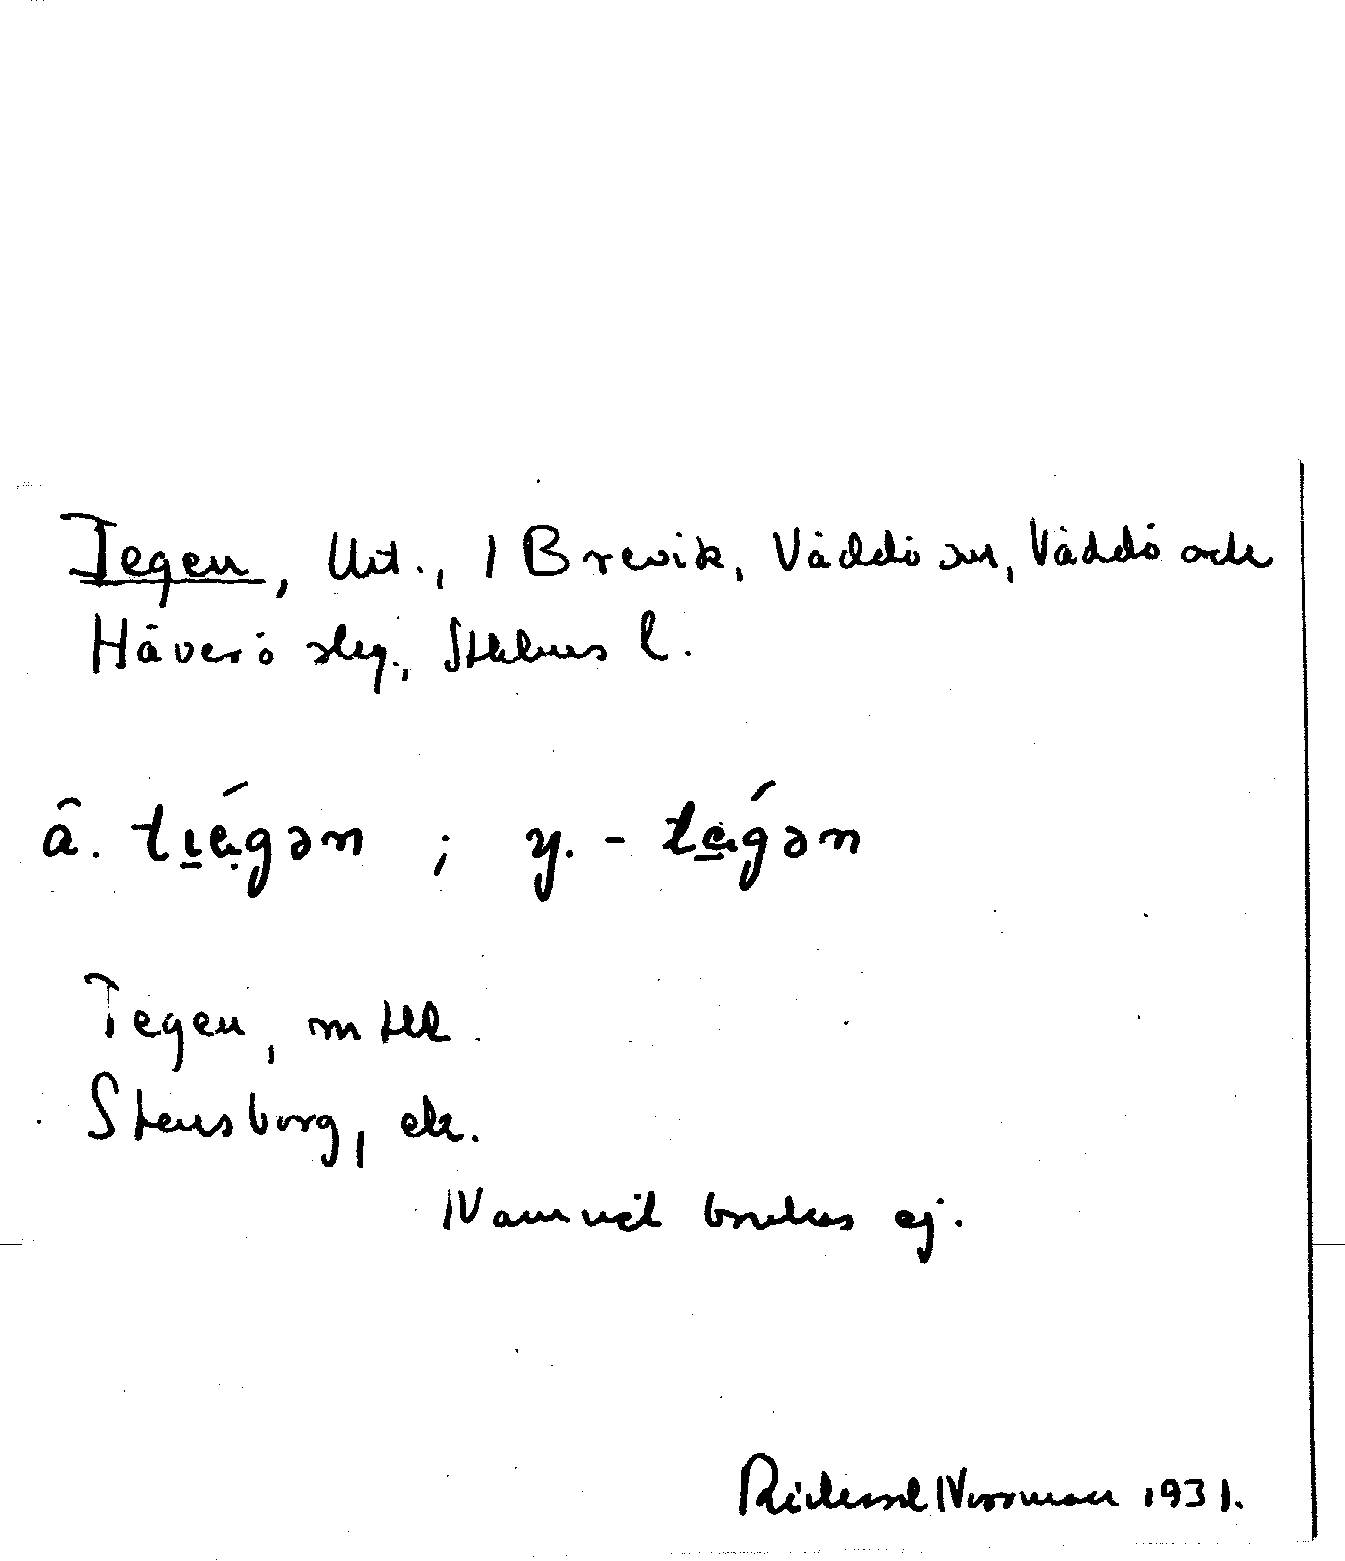 Tegen, Urt., 1 Brevik, Väddö sn, Väddö och
Häverö slg., Sthlms l.
ä. tɩégən ; y. - tégən
Tegen, mtll.
Stensborg, ek.
Namnet brukas ej.
Rickard Norrman 1931.